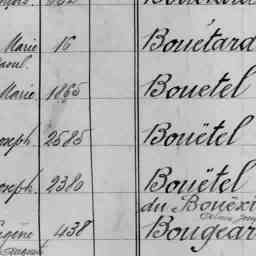 Marie 16 Bouëtard
Marie 1865 Bouëtel
Joseph 2585 Bouëtel
Joseph 2380 Bouëtel
du Bouëxi
Eugène 438 Bougear